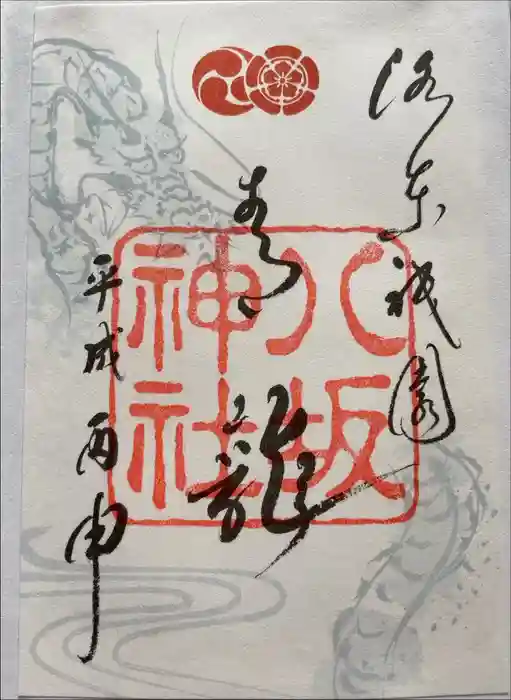 洛東祇園
青龍
八坂
神社
平成丙申